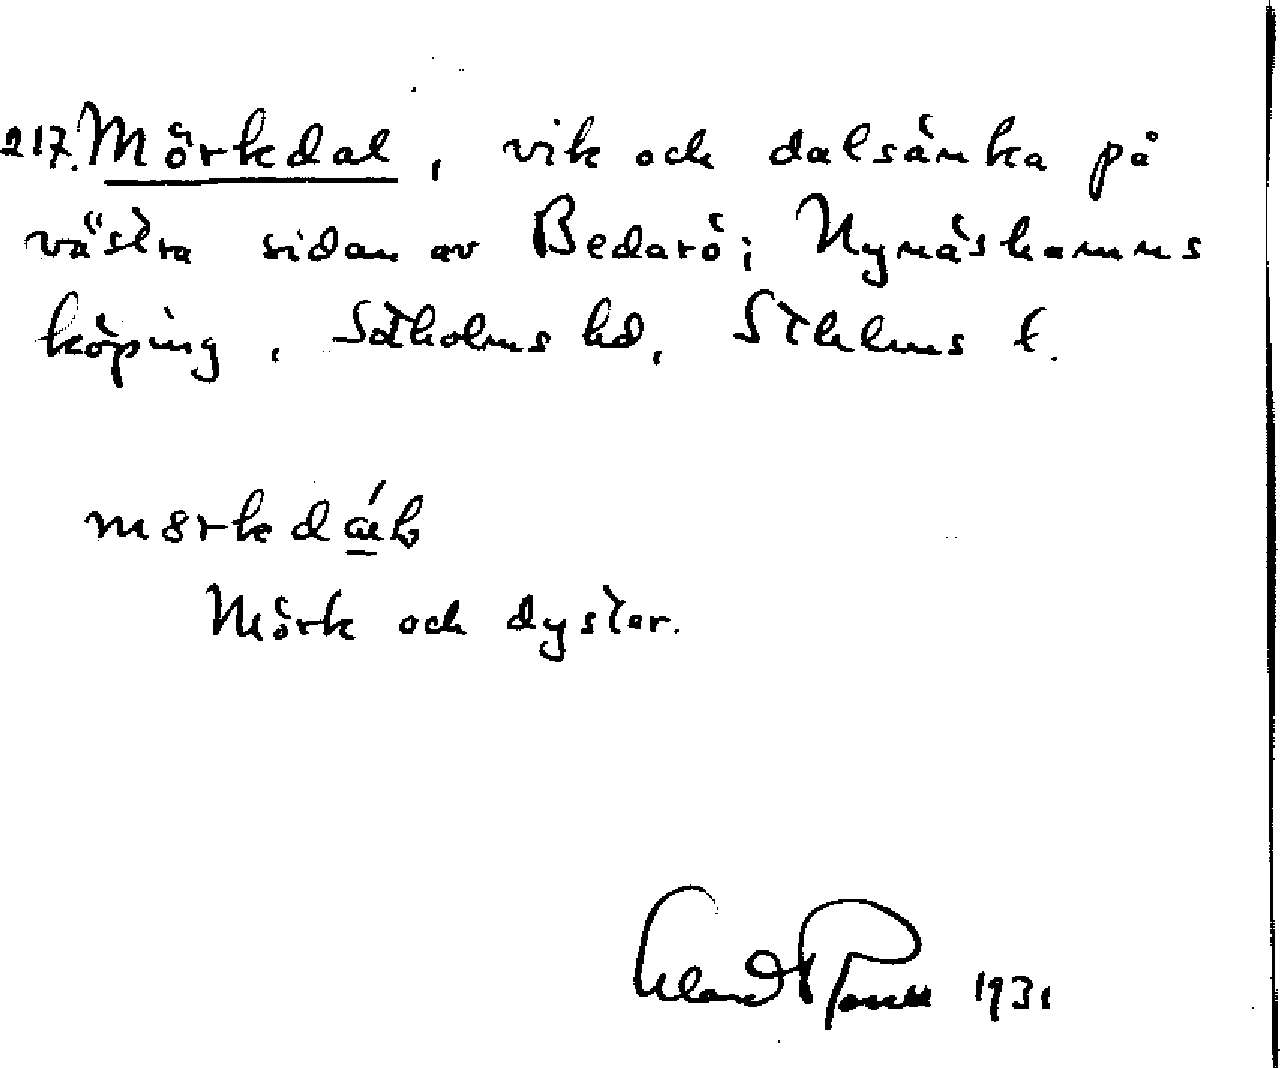 217. Mörkdal, vik och dalsänka på
västra sidan av Bedarö; Nynäshamns
köping, Sotholms hd, Sthlms l.
Mörk och dyster.
1931